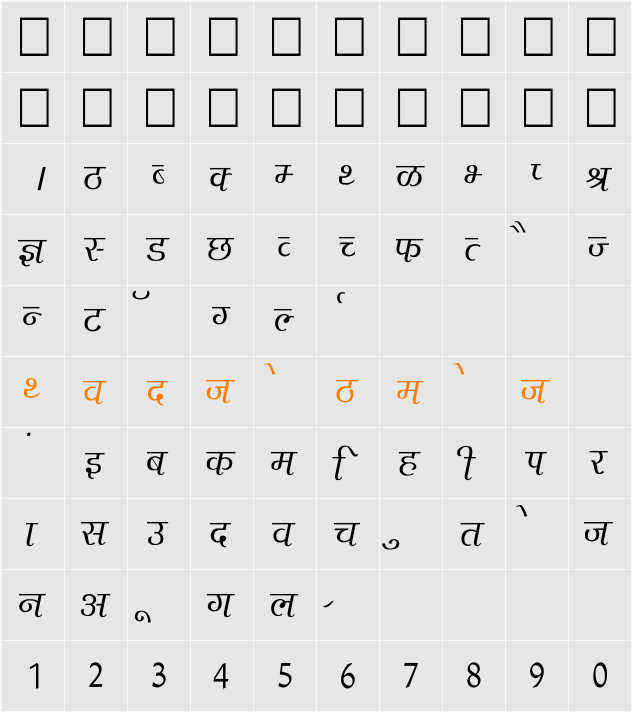 । ठ ब् क् म् थ् ळ भ् श्र
ज्ञ स् ड छ व् च् फ् त् ै ज्
न् ट ॅ ग् ल्
थ् व द ज े ठ म े ज
ं इ ब क म ि ह ी प र
ा स उ द व च ु त े ज
न अ ू ग ल
1 2 3 4 5 6 7 8 9 0